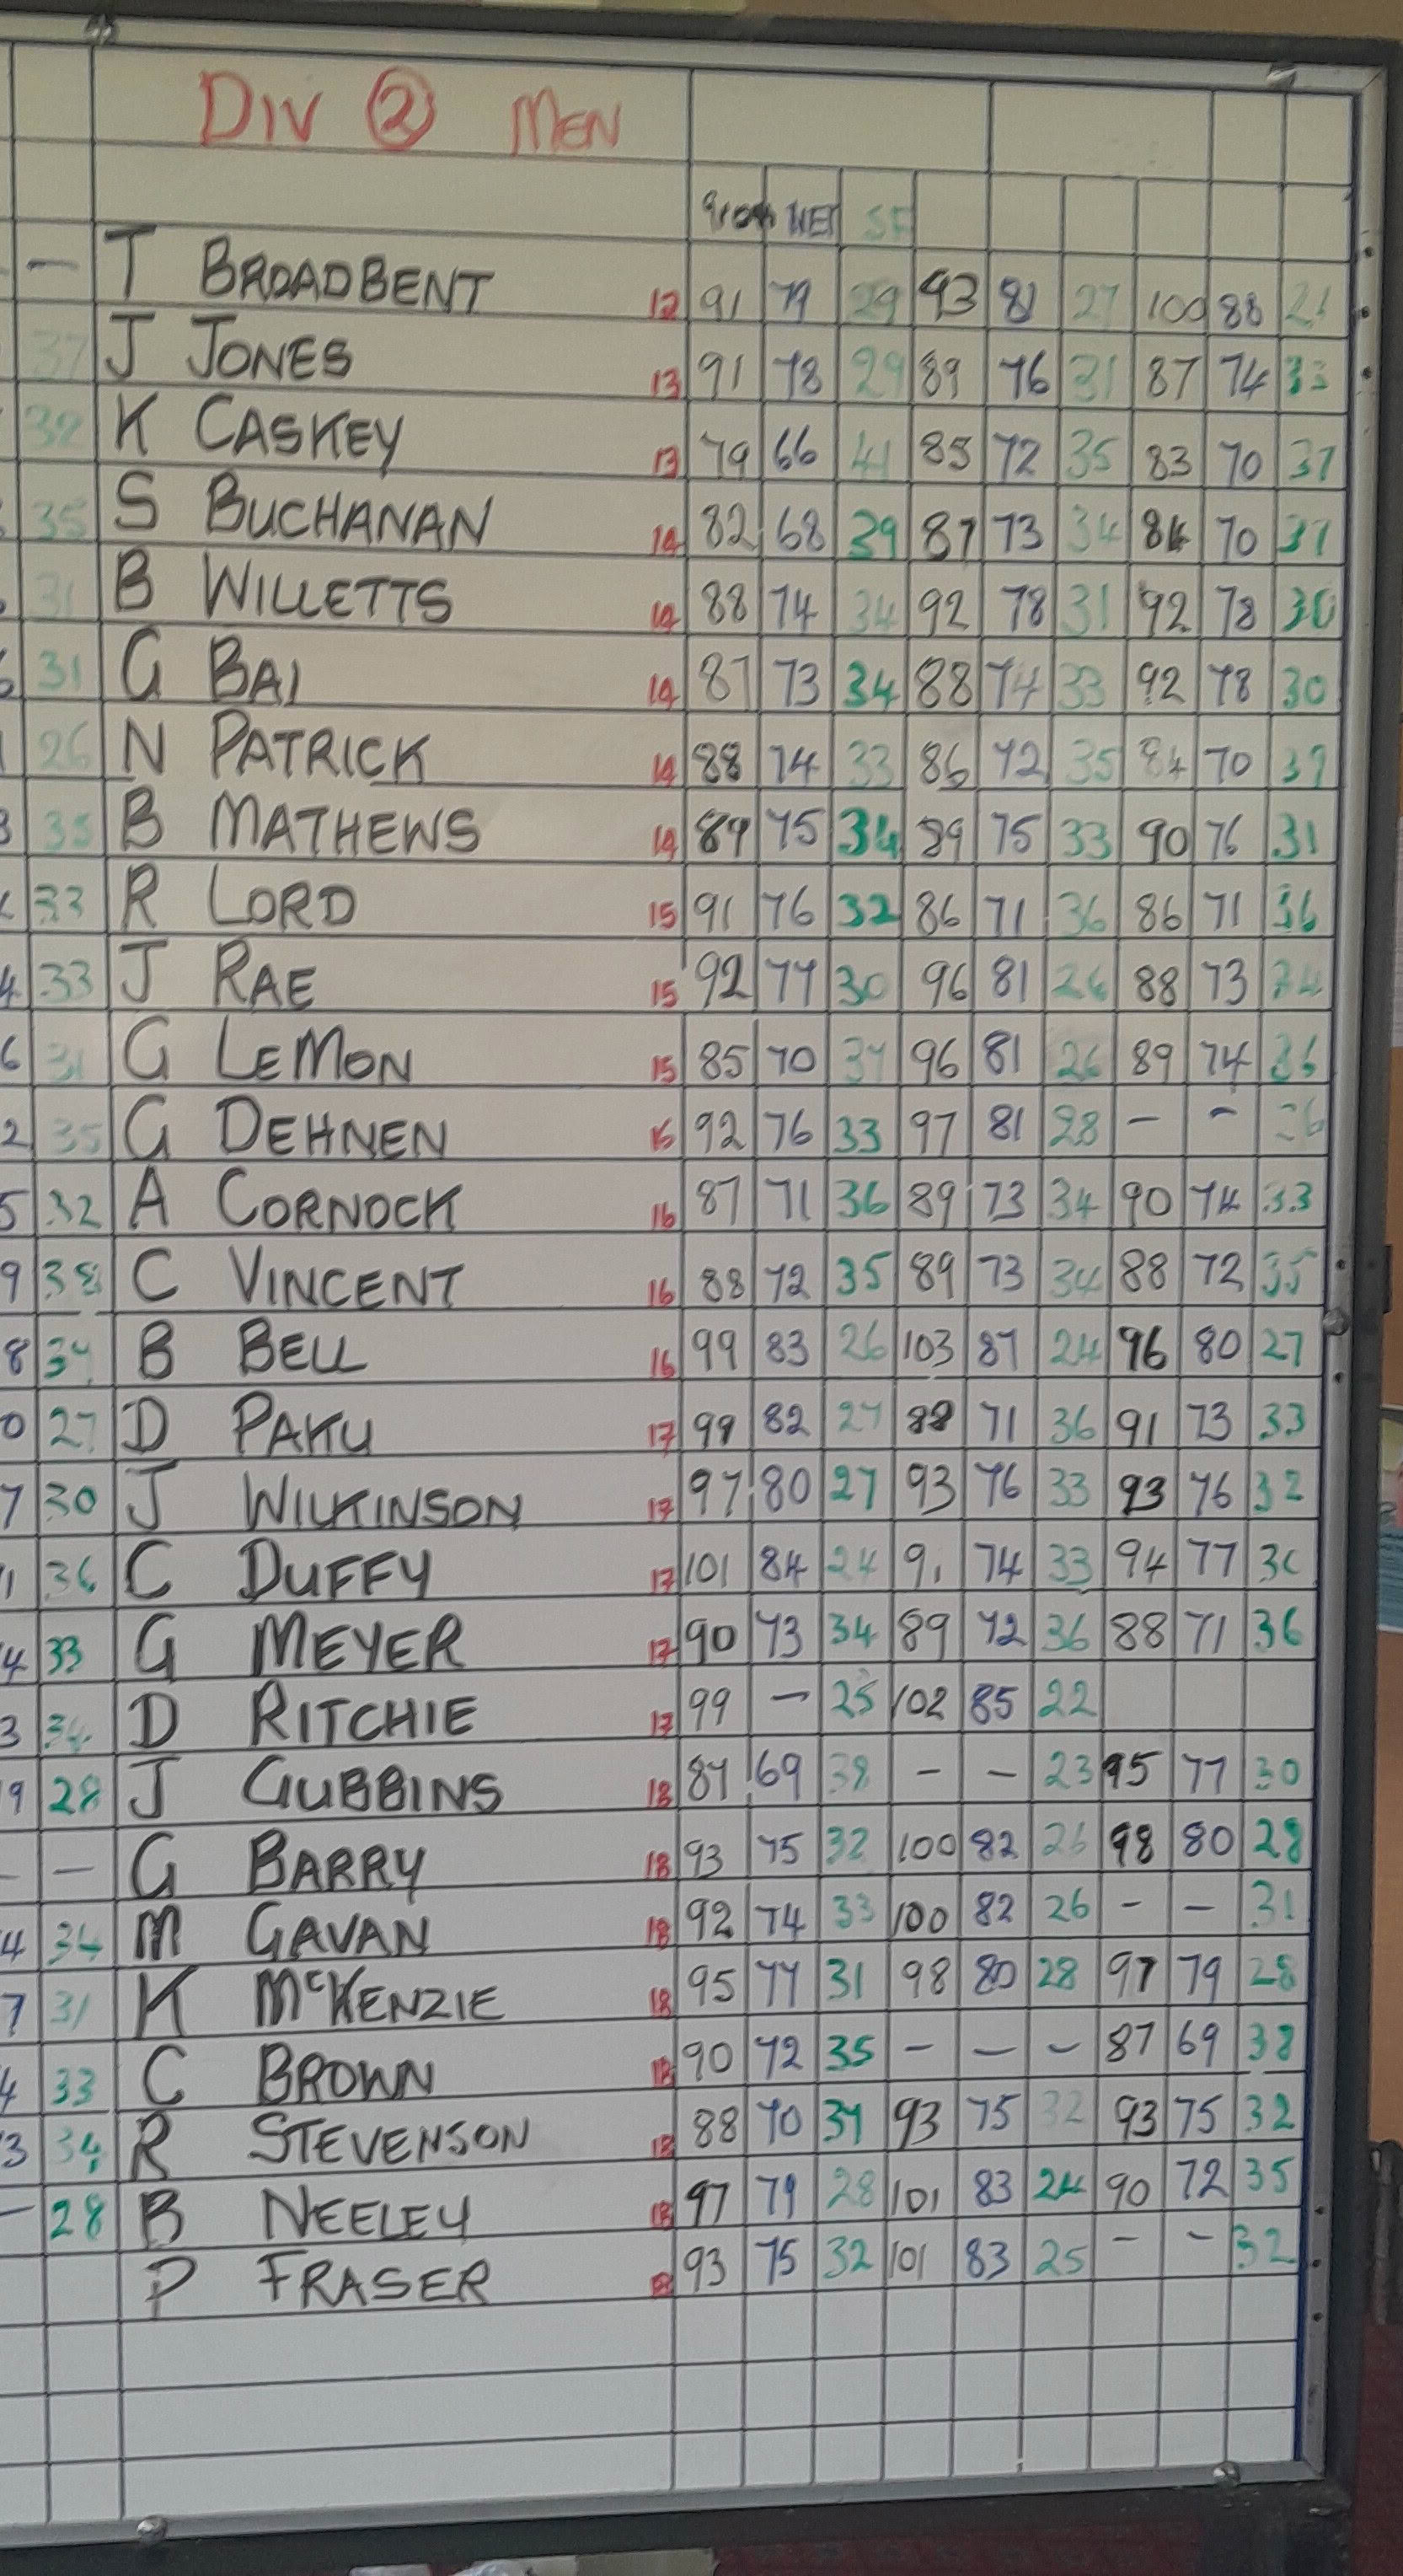 DIV ② MEN
GROSS NETT SF
— T BROADBENT 12 91 79 29 93 81 27 100 88 21
37 J JONES 13 91 78 29 89 76 31 87 74 33
K CASKEY 13 79 66 41 85 72 35 83 70 37
35 S BUCHANAN 14 82 68 39 87 73 34 84 70 37
31 B WILLETTS 14 88 74 34 92 78 31 92 78 30
31 G BAI 14 87 73 34 88 74 33 92 78 30
26 N PATRICK 14 88 74 33 86 72 35 84 70
35 B MATHEWS 14 89 75 34 89 75 33 90 76 31
33 R LORD 15 91 76 32 86 71 36 86 71 36
4 33 J RAE 15 92 77 30 96 81 26 88 73 34
6 31 G LEMON 15 85 70 37 96 81 26 89 74
2 35 G DEHNEN 92 76 33 97 81 28 — — 26
5 32 A CORNOCK 16 87 71 36 89 73 34 90 74 33
9 38 C VINCENT 16 88 72 35 89 73 34 88 72 35
8 34 B BELL 16 99 83 26 103 87 24 96 80 27
0 27 D PAKU 17 99 82 27 88 71 36 91 73 33
7 30 J WILKINSON 17 97 80 27 93 76 33 93 76 32
1 36 C DUFFY 17 101 84 24 91 74 33 94 77 30
4 33 G MEYER 17 90 73 34 89 72 36 88 71 36
3 34 D RITCHIE 17 99 — 25 102 85 22
9 28 J GUBBINS 18 87 69 38 — — 23 95 77 30
— — G BARRY 18 93 75 32 100 82 26 98 80 28
4 34 M GAVAN 18 92 74 33 100 82 26 — — 31
7 31 K McKENZIE 18 95 77 31 98 80 28 97 79 28
4 33 C BROWN 18 90 72 35 — — — 87 69 38
3 34 R STEVENSON 18 88 70 37 93 75 32 93 75 32
— 28 B NEELEY 18 97 79 28 101 83 24 90 72 35
P FRASER 93 75 32 101 83 25 — — 32